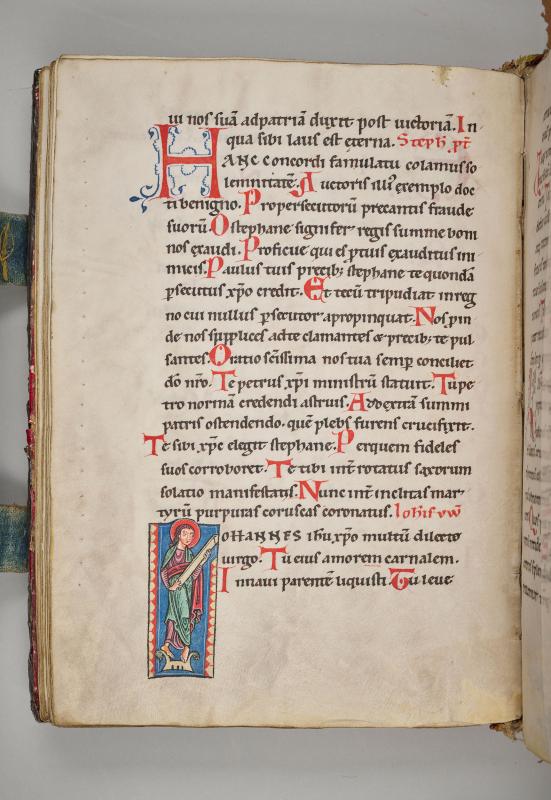 ui nos suā adpatriā duxit post uictoriā. In
qua sibi laus est eterna. Steph. pr̄
HANC concordi famulatu colamus so
lemnitatē. Auctoris illiꝰ exemplo doc
ti benigno. Propersecutorū precantis fraude
suorū. O stephane signifer regis summe boni
nos exaudi. Proficue qui es ꝑtuis exauditus ini
micis. Paulus tuis precibꝫ stephane te quondā
ꝑsecutus xp̄o credit. Et tecū tripudiat inreg
no cui nullus ꝑsecutor apropinquat. Nos ꝓin
de nos supplices adte clamantes & precibꝫ te pul
santes. Oratio sc̄issima nos tua semꝑ conciliet
dō nr̄o. Te petrus xp̄i ministrū statuit. Tu pe
tro normā credendi astruis. Ad dextrā summi
patris ostendendo. quē plebs furens crucifixit.
Te sibi xp̄e elegit stephane. Per quem fideles
suos corroboret. Te tibi int̄ rotatus saxorum
solatio manifestans. Nunc int̄ inclitas mar
tyrū purpuras coruscas coronatus. Ioh̄is ew̄
IOHANNES ihu xp̄o multū dilecte
uirgo. Tu eius amorem carnalem.
In naui parentē liquisti. Tu leue